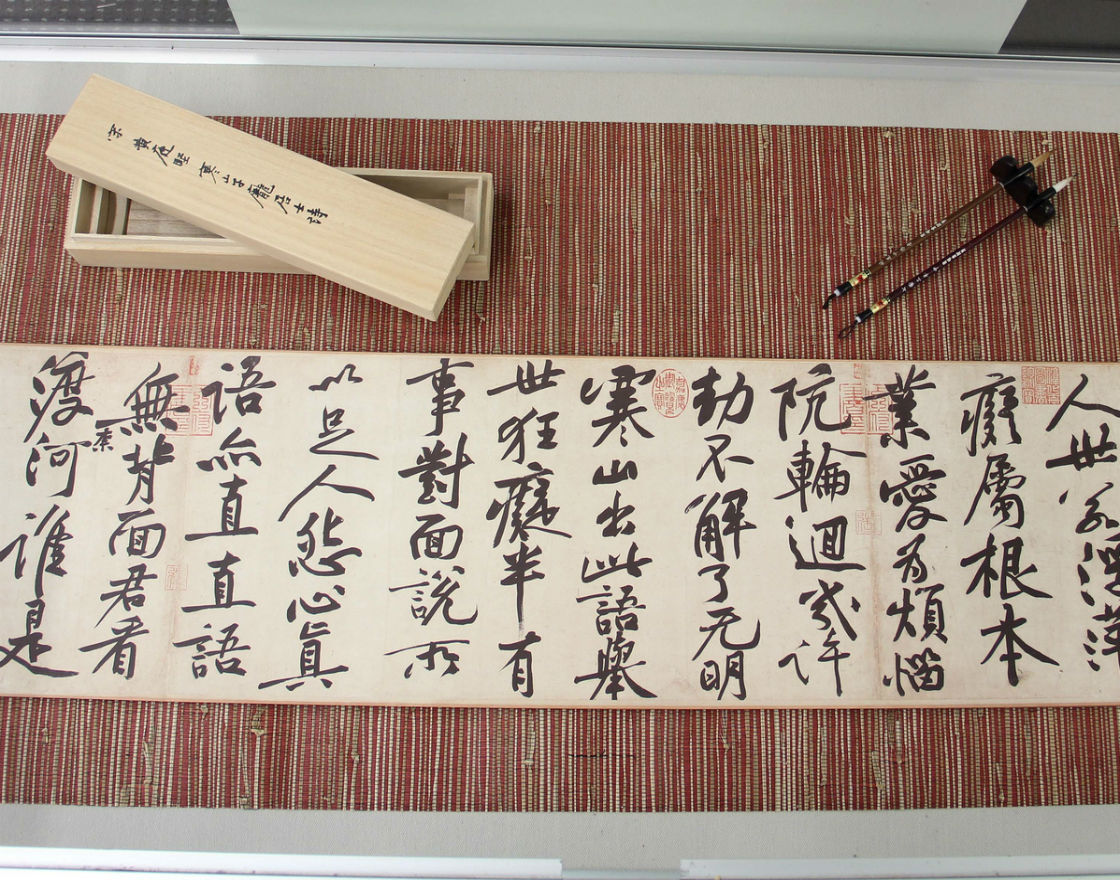 宋黃庭堅寒山子龐居士詩
人世若浮萍
癡屬根本
業愛為煩惱
阬輪迴幾許
劫不解了无明
寒山出此語舉
世狂癡半有
事對面說所
以足人怨心真
語亦直直語
無背面君看
柰
渡河誰是